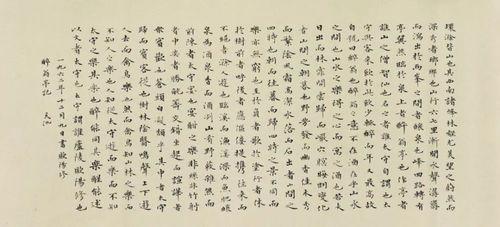 環滁皆山也其西南諸峰林壑尤美望之蔚然而
深秀者瑯琊也山行六七里漸聞水聲潺潺
而瀉出於兩峯之間者釀泉也峰回路轉有
亭翼然臨於泉上者醉翁亭也作亭者
誰山之僧智仙也名之者誰太守自謂也太
守與客來飲於此飲少輒醉而年又最高故
自號曰醉翁也醉翁之意不在酒在乎山水
之間也山水之樂得之心而寓之酒也若夫
日出而林霏開雲歸而巖穴暝晦明變化
者山間之朝暮也野芳發而幽香佳木秀
而繁陰風霜高潔水落而石出者山間之
四時也朝而往暮而歸四時之景不同而
樂亦無窮也至於負者歌於塗行者休
於樹前者呼後者應傴僂提攜往來而
不絕者滁人遊也臨溪而漁溪深而魚肥釀
泉為酒泉香而酒洌山肴野蔌雜然而
前陳者太守宴也宴酣之樂非絲非竹射
者中奕者勝觥籌交錯坐起而諠譁者
衆賓歡也蒼顏白髮頹乎其中者太守
歸而賓客從也樹林陰翳鳴聲上下遊
人去而禽鳥樂也然而禽鳥知山林之樂而
不知人之樂人知從太守遊而樂而不知
太守之樂其樂也醉能同其樂醒能述
以文者太守也太守謂誰廬陵歐陽修也
一九六二年十二月九日書歐陽修
醉翁亭記 天池